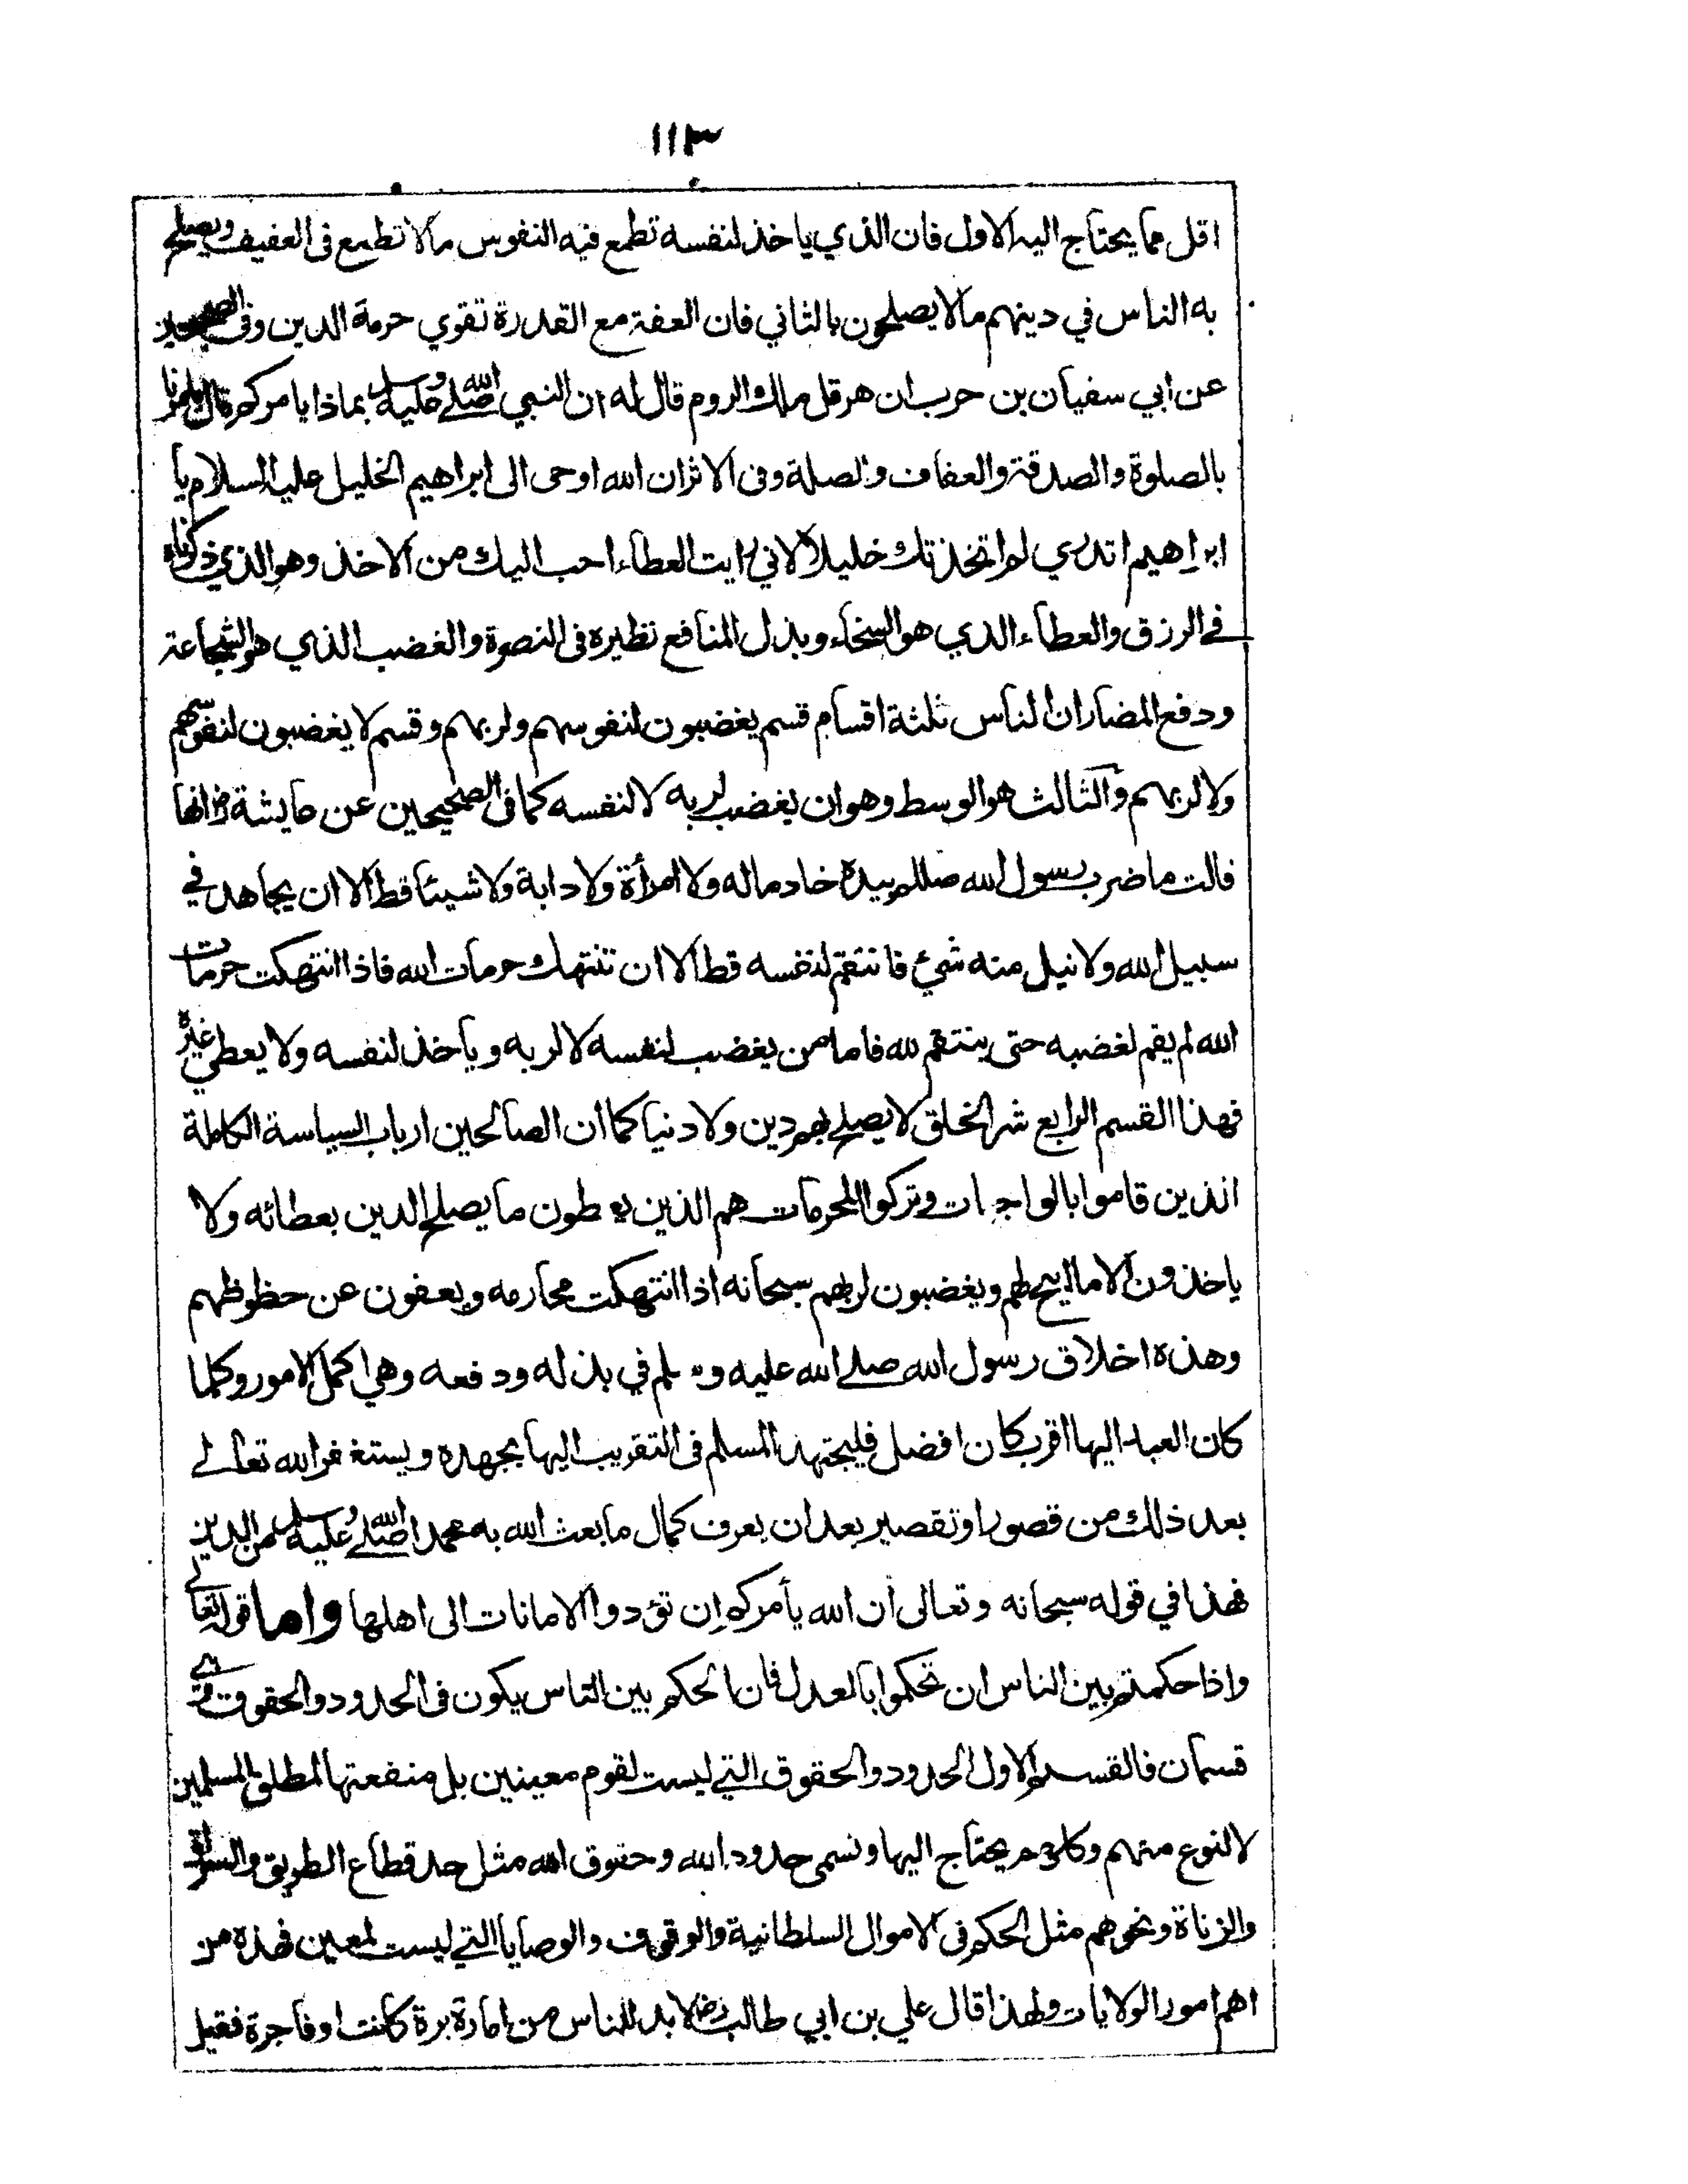 ١١٣
اقل مما يحتاج اليه الاول فان الذي ياخذ لنفسه تطمع فيه النفوس مالا تطمع فى العفيف ويصلح
به الناس في دينهم مالا يصلحون بالثاني فان العفة مع القدرة تقوي حرمة الدين وفى الصحيحين
عن ابي سفيان بن حرب ان هرقل ملك الروم قال له ان النبي صلى الله عليه وسلم بماذا يامركم قال يامرنا
بالصلوة والصدقة والعفاف والصلة وفى الاثران الله اوحى الى ابراهيم الخليل عليه السلام يا
ابراهيم اتدري لم اتخذتك خليلا لاني رايت العطاء احب اليك من الاخذ وهو الذي ذكرناه
في الرزق والعطاء الذي هو السخاء وبذل المنافع نظيره فى النصرة والغضب الذي هو الشجاعة
ودفع المضار ان الناس ثلثة اقسام قسم يغضبون لنفوسهم ولربهم وقسم لا يغضبون لنفوسهم
ولا لربهم والثالث هو الوسط وهو ان يغضب لربه لا لنفسه كما فى الصحيحين عن عايشة رض انها
قالت ما ضرب رسول الله صللم بيده خادما له ولا امرأة ولا دابة ولا شيئا قط الا ان يجاهد في
سبيل الله ولا نيل منه شئ فانتقم لنفسه قط الا ان تنتهك حرمات الله فاذا انتهكت حرمات
الله لم يقم لغضبه حتى ينتقم لله فاما من يغضب لنفسه لا لربه وياخذ لنفسه ولا يعطي غيره
فهذا القسم الرابع شر الخلق لا يصلح بهم دين ولا دنيا كما أن الصالحين ارباب السياسة الكاملة
الذين قاموا بالواجبات وتركوا المحرمات هم الذين يعطون ما يصلح الدين بعطائه ولا
ياخذون الا ما ابيح لهم ويغضبون لربهم سبحانه اذا انتهكت محارمه ويعفون عن حظوظهم
وهذه اخلاق رسول الله صلے الله عليه وسلم في بذله ودفعه وهي اكمل الامور وكلما
كان العبد اليها اقرب كان افضل فليجتهد المسلم فى التقريب اليها بجهده ويستغفر الله تعالے
بعد ذلك من قصور او تقصير بعد ان يعرف كمال ما بعث الله به محمدا صلى الله عليه وسلم من الدين
فهذا في قوله سبحانه وتعالى ان الله يأمركم ان تؤدوا الامانات الى اهلها واما قوله تعالے
واذا حكمتم بين الناس ان تحكموا بالعدل فان الحكم بين الناس يكون فى الحدود والحقوق وهي
قسمان فالقسم الاول الحدود والحقوق التي ليست لقوم معينين بل منفعتها لمطلق المسلمين
لا لنوع منهم وكلهم يحتاج اليها وتسمى حدود الله وحقوق الله مثل حد قطاع الطريق والسراق
والزناة ونحوهم مثل الحكم فى الاموال السلطانية والوقوف والوصايا التي ليست لمعين فهذه من
اهم امور الولايات ولهذا قال علي بن ابي طالب رض لا بد للناس من امارة برة كانت او فاجرة فقيل